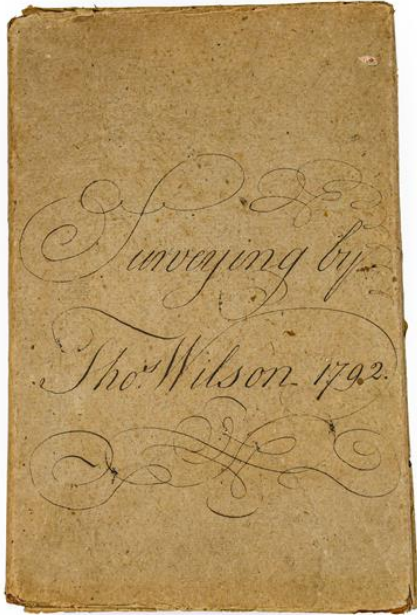 Surveying by
Thos Wilson 1792.